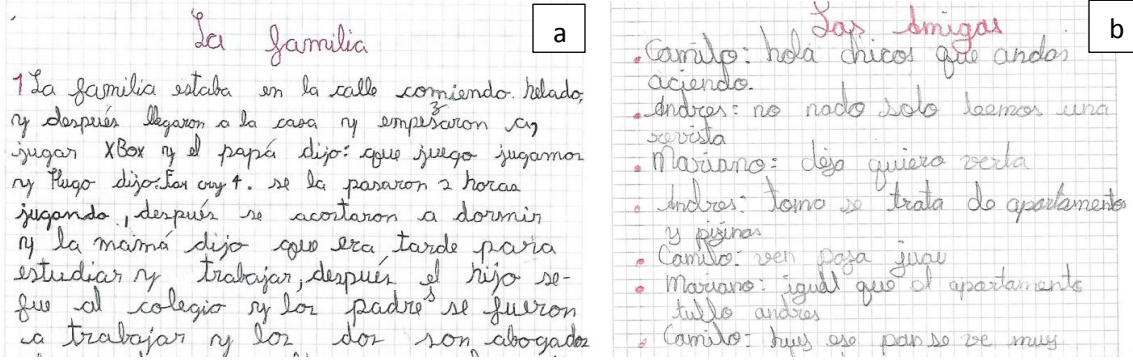 La familia
a
1 La familia estaba en la calle comiendo helado,
y después llegaron a la casa y empesaron a
jugar XBox y el papá dijo: que juego jugamos
y Hugo dijo: Far cry 4. se la pasaron 2 horas
jugando, después se acostaron a dormir
y la mamá dijo que era tarde para
estudiar y trabajar, después el hijo se-
fue al colegio y los padres se fueron
a trabajar y los dos son abogados
Los Amigos
b
Camilo: hola chicos que andan
aciendo.
Andres: no nada solo leemos una
revista
Mariano: dejo quiero verla
Andres: toma se trata de apartamento
y pizinas
Camilo: ven pasa
Mariano: igual que el apartamento
tullo andres
Camilo: ese pan se ve muy